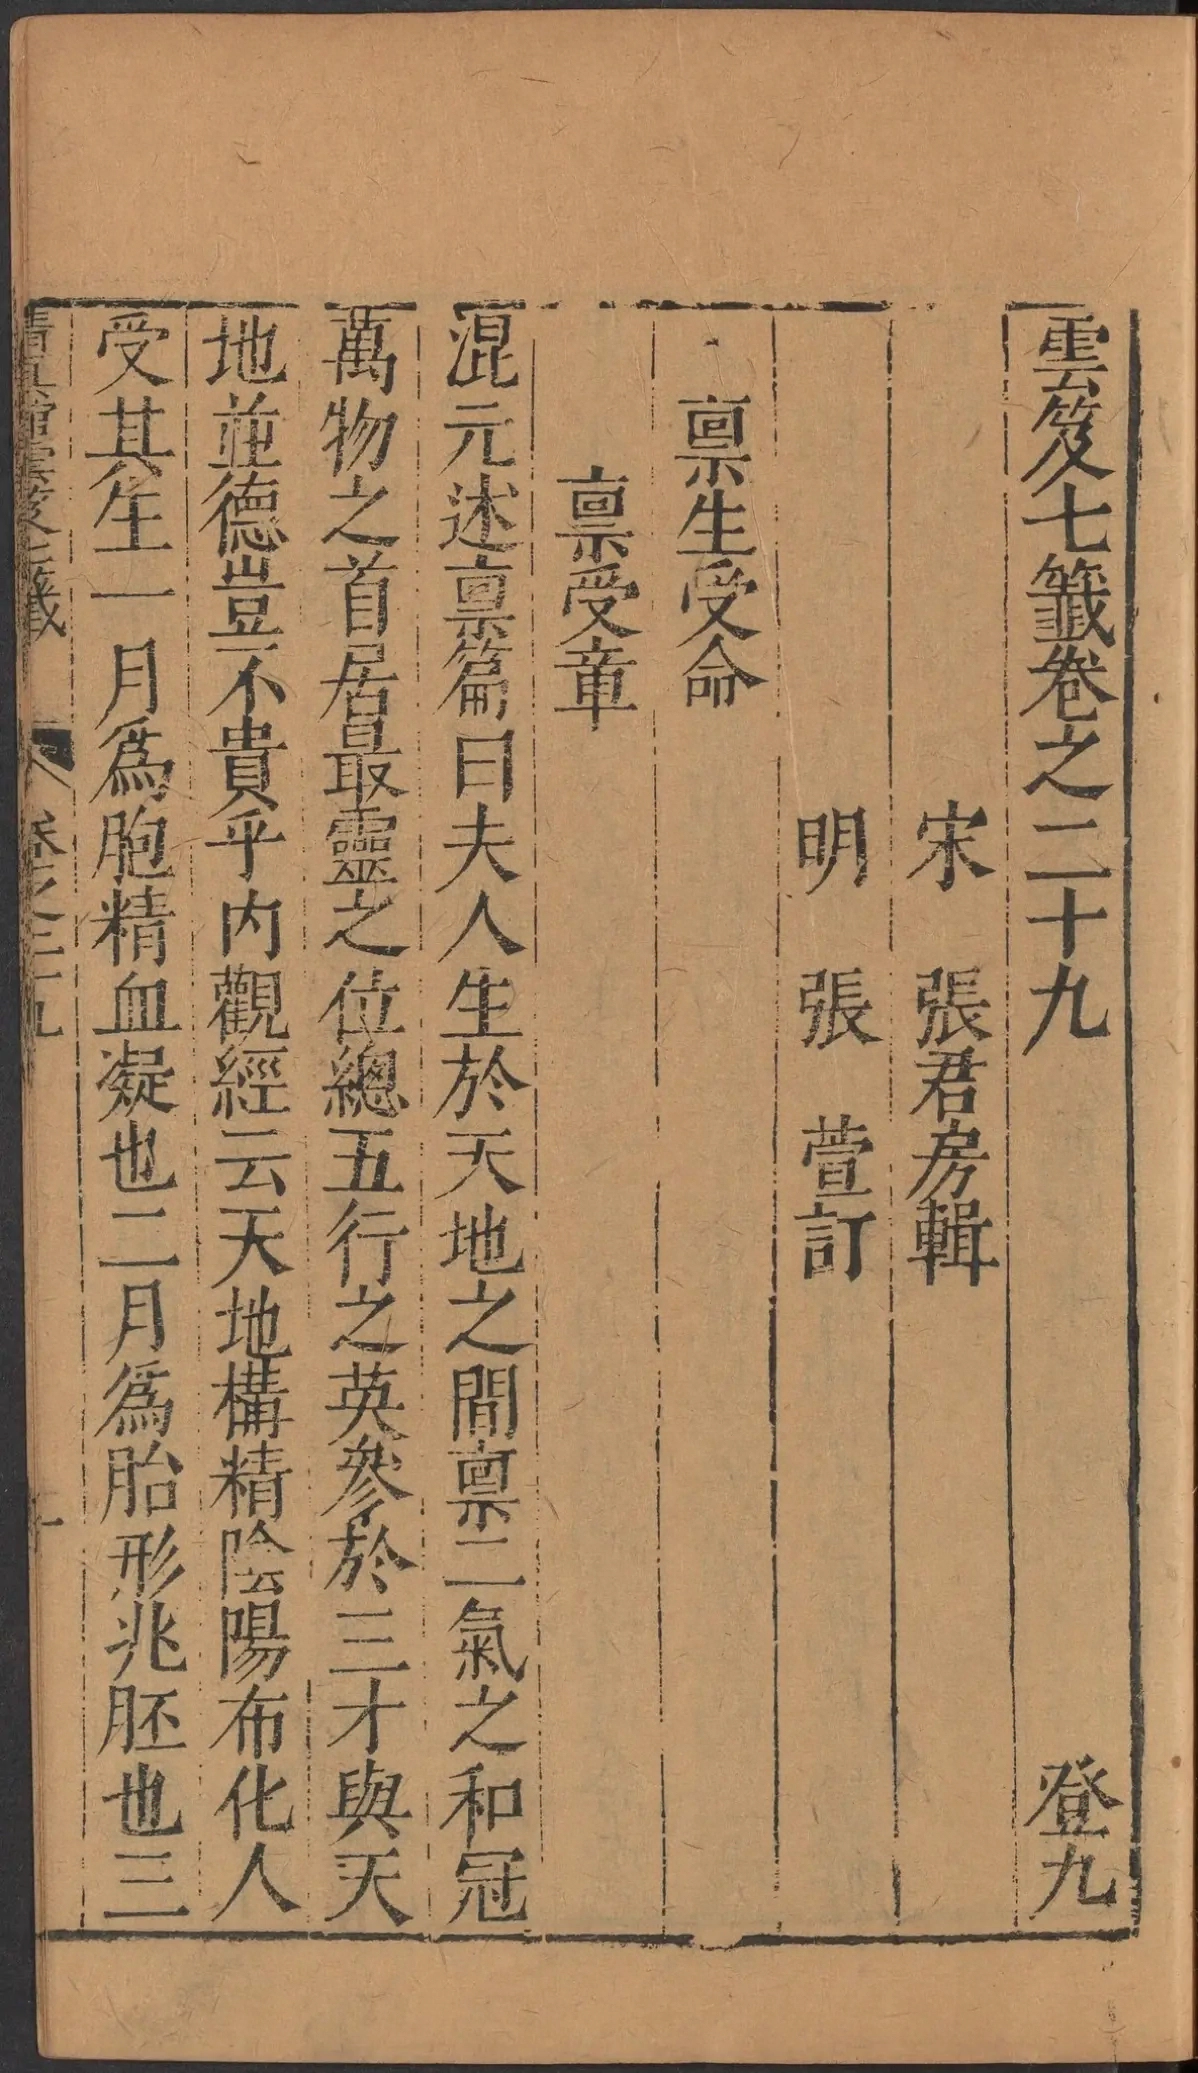 雲笈七籤卷之二十九 登九
宋 張君房輯
明 張 萱訂
稟生受命
稟受章
混元述稟篇曰夫人生於天地之間稟二氣之和冠
萬物之首居最靈之位總五行之英參於三才與天
地並德豈不貴乎内觀經云天地構精陰陽布化人
受其生一月爲胞精血凝也二月爲胎形兆胚也三
清真館雲笈七籤 卷之二十九 一